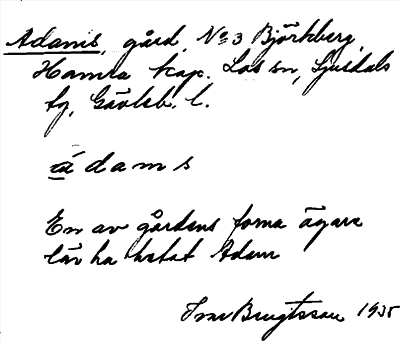 Adams, gård, No 3 Björkberg,
Hamra kap. Los sn, Ljusdals
tg, Gävleb. l.
ádams
En av gårdens forna ägare
lär ha hetat Adam
Ivar Bengtsson 1935